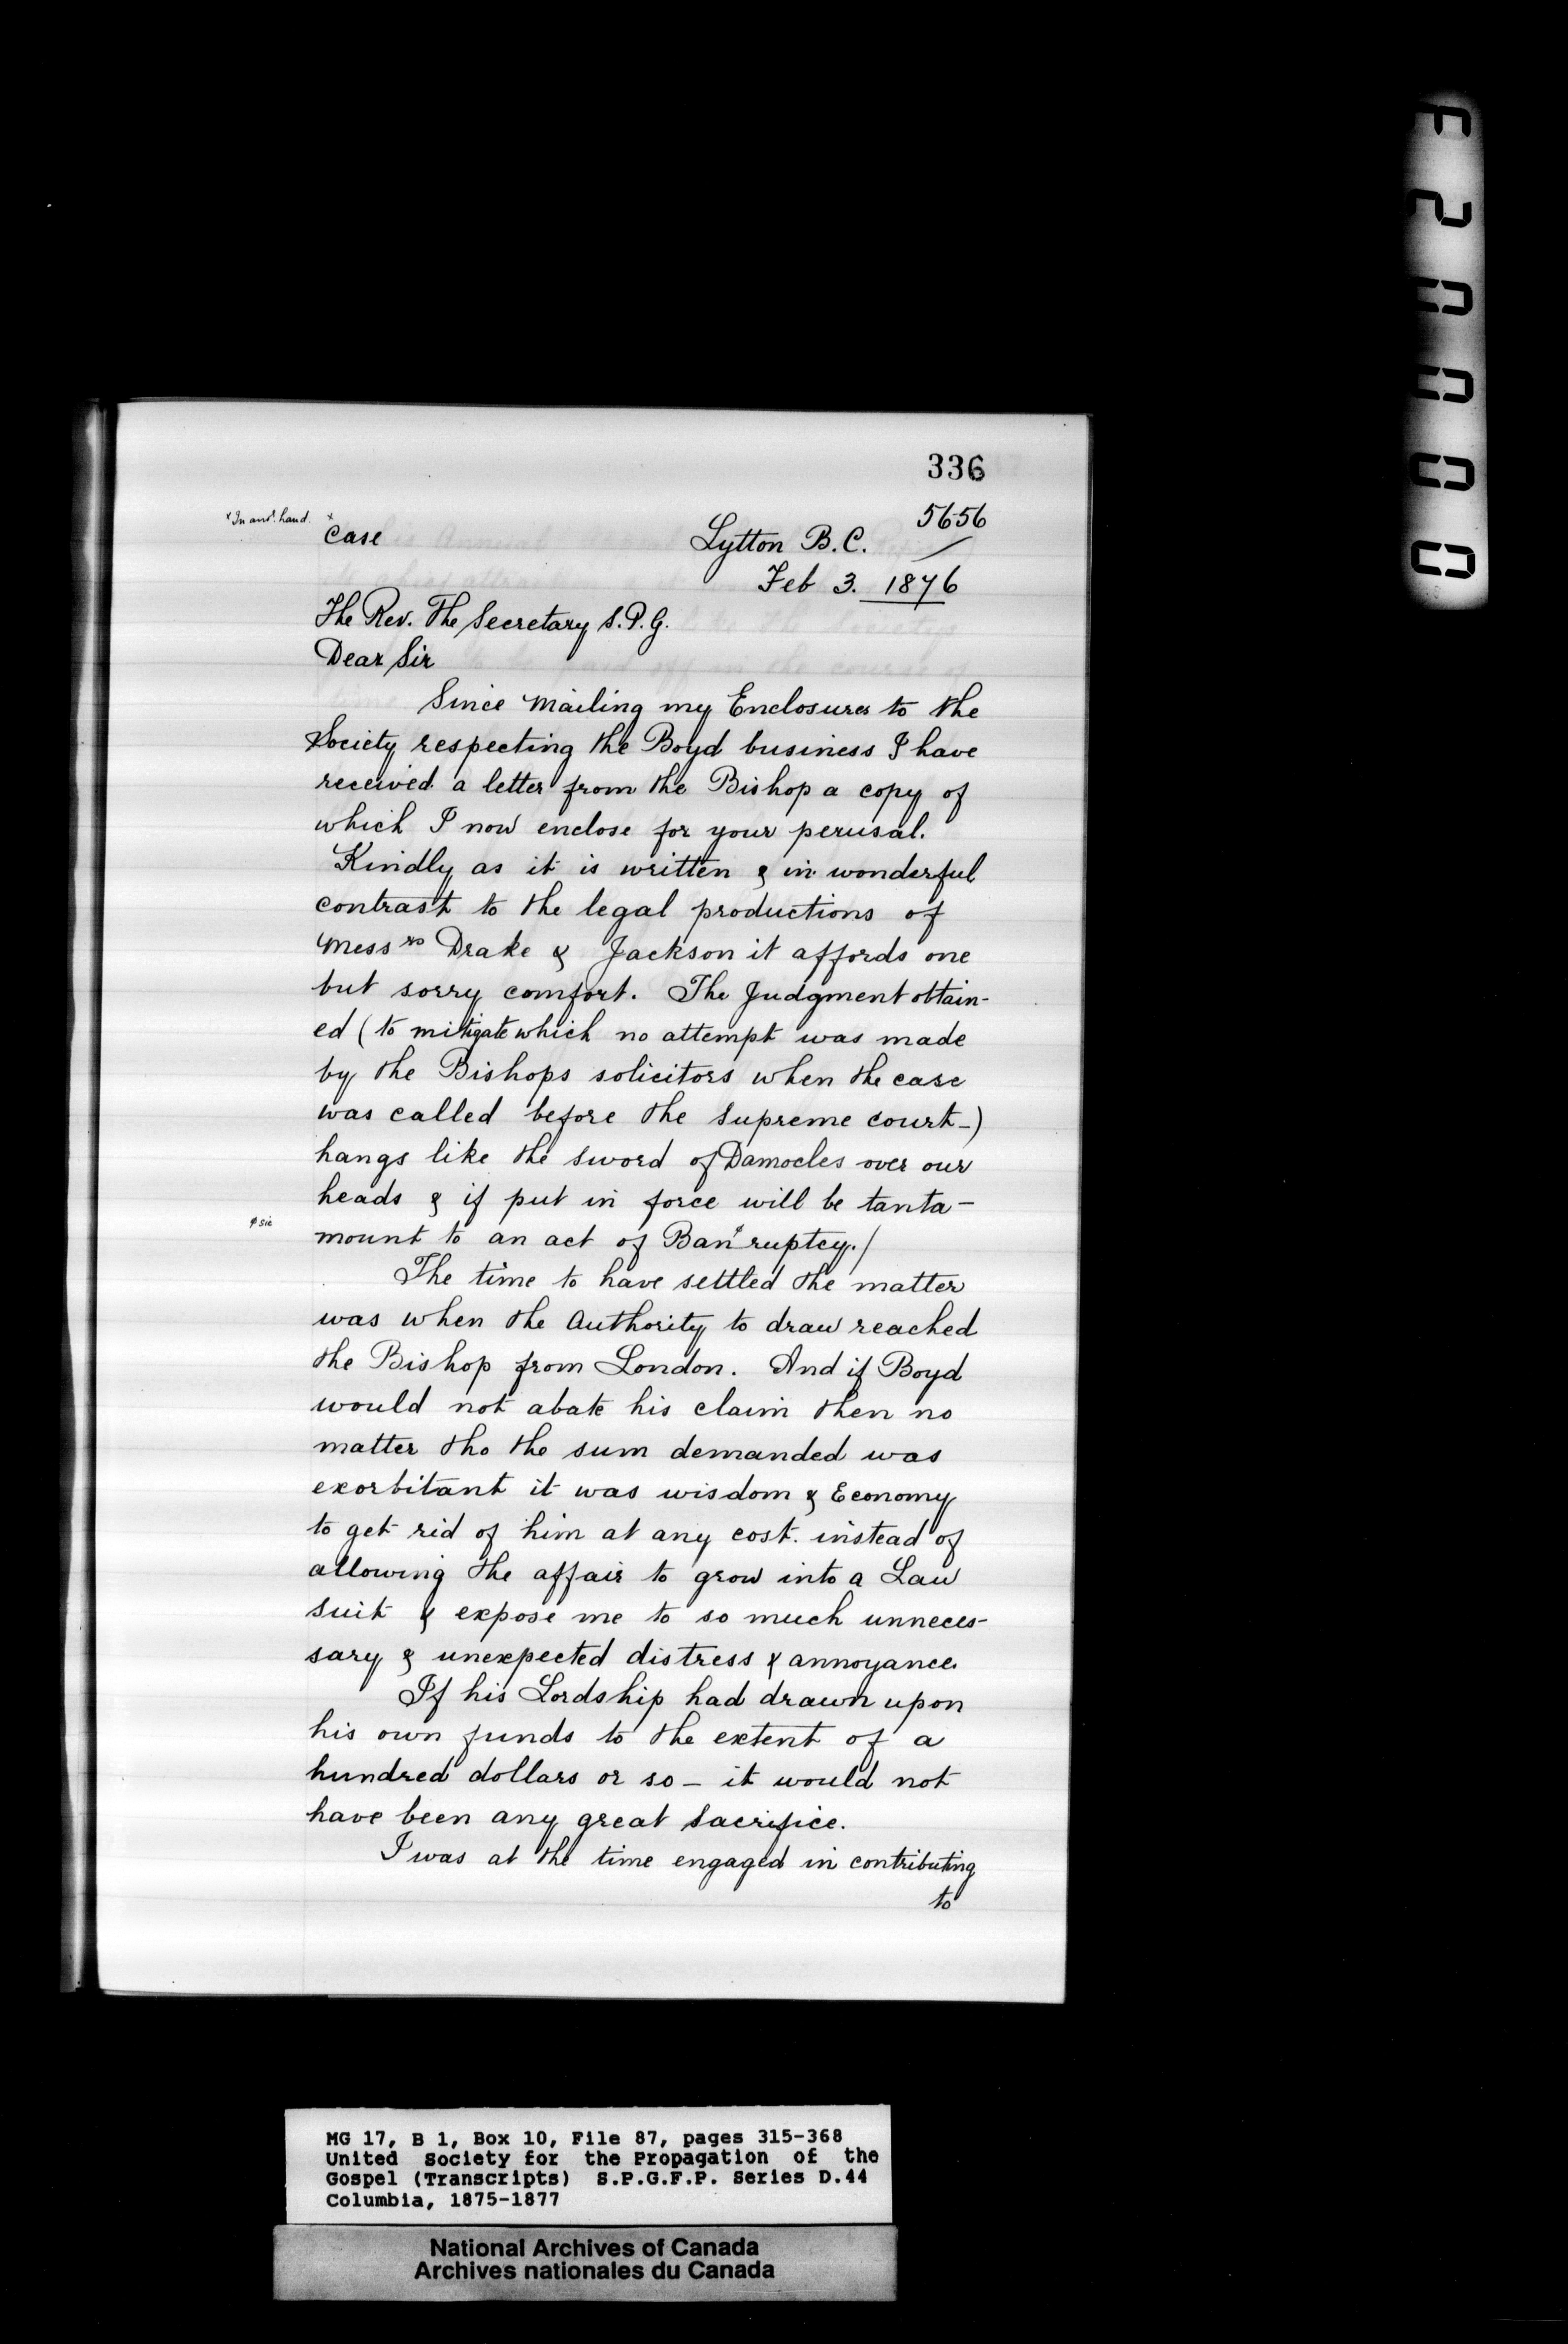 336
5656
x In anr. hand.
x case
Lytton B.C.
Feb 3. 1876
The Rev. The Secretary S.P.G.
Dear Sir
Since mailing my Enclosures to the
Society respecting the Boyd business I have
received a letter from the Bishop a copy of
which I now enclose for your perusal.
Kindly as it is written & in wonderful
contrast to the legal productions of
Messrs Drake & Jackson it affords one
but sorry comfort. The Judgment obtain-
ed (to mitigate which no attempt was made
by the Bishops solicitors when the case
was called before the Supreme court-)
hangs like the sword of Damocles over our
heads & if put in force will be tanta-
ɸ sic
mount to an act of Banɸruptcy./
The time to have settled the matter
was when the Authority to draw reached
the Bishop from London. And if Boyd
would not abate his claim then no
matter tho the sum demanded was
exorbitant it was wisdom & Economy
to get rid of him at any cost. instead of
allowing the affair to grow into a Law
suit & expose me to so much unneces-
sary & unexpected distress & annoyance.
If his Lordship had drawn upon
his own funds to the extent of a
hundred dollars or so – it would not
have been any great sacrifice.
I was at the time engaged in contributing
to
MG 17, B 1, Box 10, File 87, pages 315-368
United Society for the Propagation of the
Gospel (Transcripts) S.P.G.F.P. Series D.44
Columbia, 1875-1877
National Archives of Canada
Archives nationales du Canada